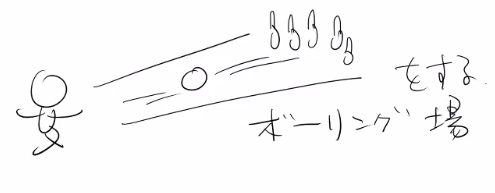 をする
ボーリング場